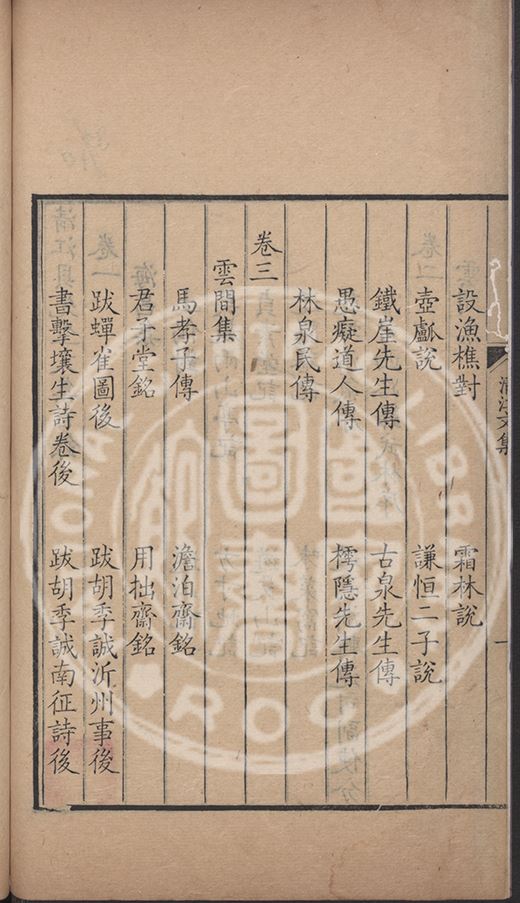 清江文集
設漁樵對　霜林說
壺甗說　謙恒二子說
鐵崖先生傳　古泉先生傳
愚癡道人傳　樗隱先生傳
林泉民傳
卷三
雲間集
馬孝子傳　澹泊齋銘
君子堂銘　用拙齋銘
跋蟬雀圖後　跋胡季誠沂州事後
書擊壤生詩卷後　跋胡季誠南征詩後